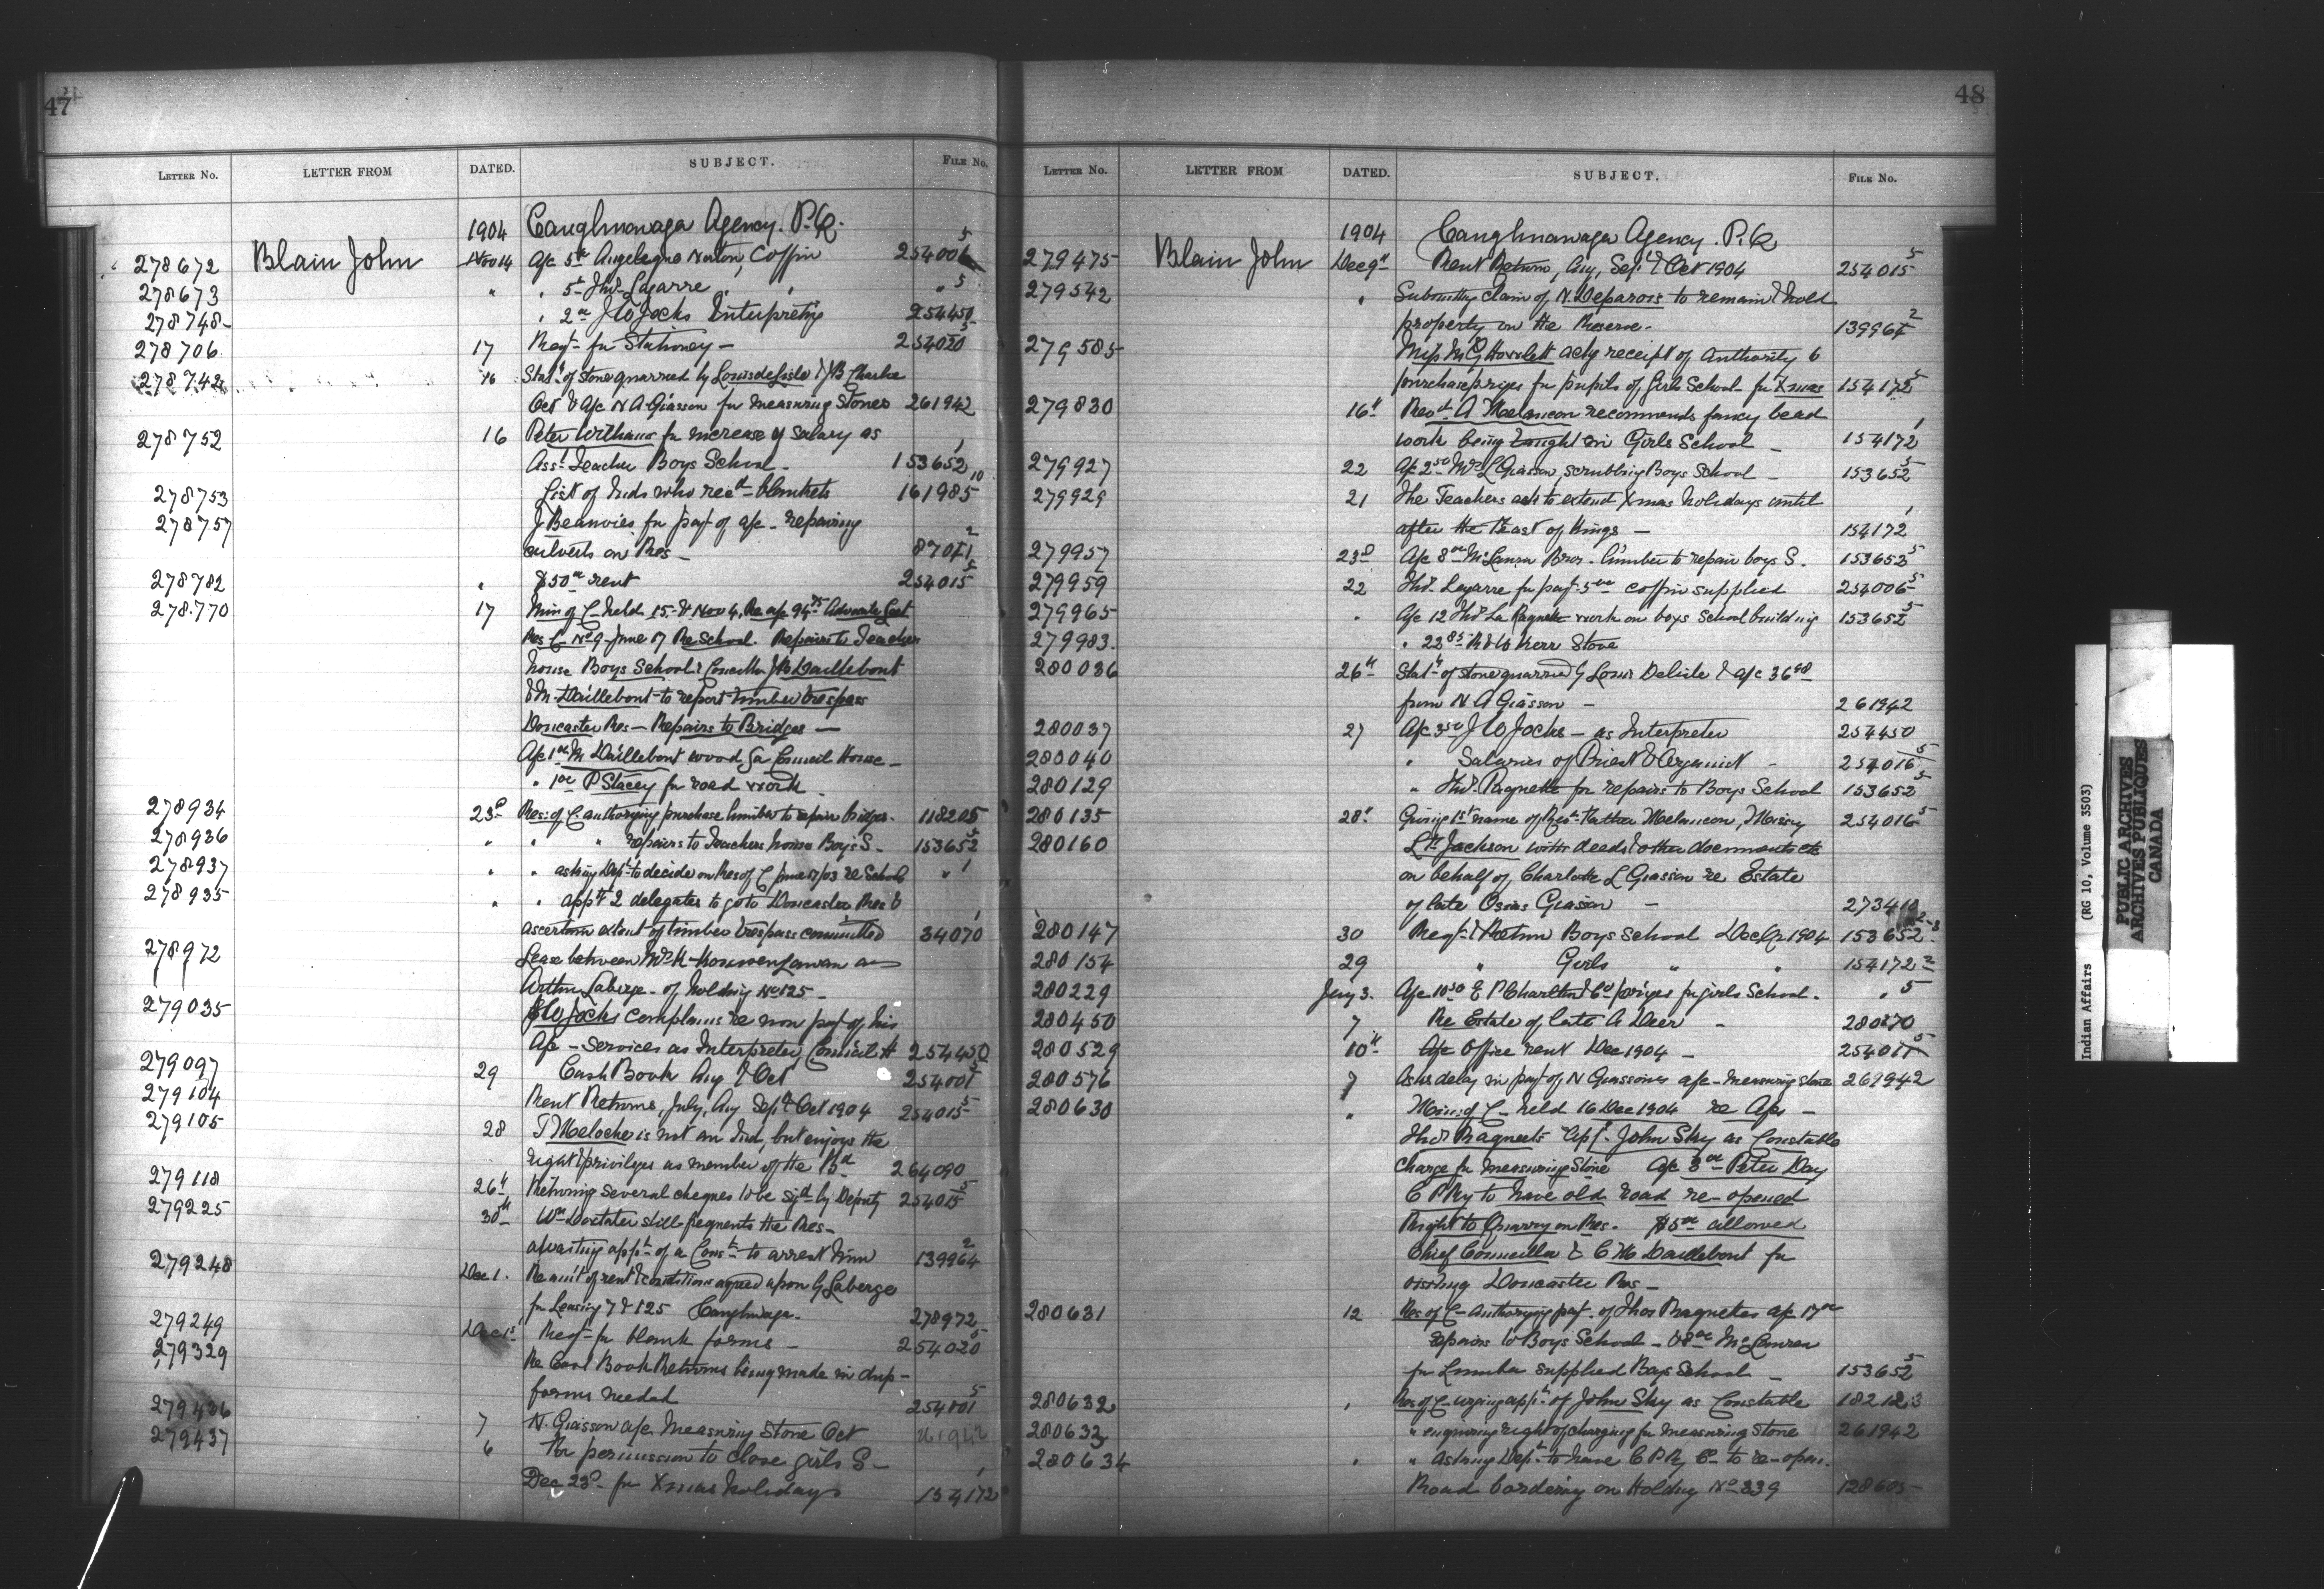 47
LETTER NO. LETTER FROM DATED. SUBJECT. FILE NO.
1904 Caughnawaga Agency. P.Q.
278672 Blain John Nov 14 A/c 5 00 Norton, Coffin 254006 5
278673 " " 5 - Thos Lazarre " " " 5
278748 " 2 00 J W Jocks Interpreting 254450
278706 17 Reqt for Stationery — 254020 5
278742 16 Statt of stone quarried by Louis de Lisle & J B Charlie
Oct & A/c N A Giasson for measuring Stones 261942
278752 16 Peter Williams for increase of salary as
Asst Teacher Boys School - 153652 1
278753 List of Inds who recd blankets 161985 10
278757 J Beauvies for payt of a/c - repairing
culverts on Res - 87071 2
278782 " $50 00 rent 254015 5
278770 17 Min of C held 15 & Nov 4. Re a/c 94 75 Advocate
Res C No 9 June 17 Re School. Repairs to Teachers
house Boys School & Councillor J B Daillebont
& M Daillebont to report timber trespass
Doncaster Res — Repairs to Bridges —
A/c 1 00 M Daillebont wood for Council House —
" 1 00 P Stacey for road work.
278934 23d Res: of C authorizing purchase timber to repair bridges. 118205
278936 " " " repairs to Teachers house Boys S. 153652 5
278937 " " asking Dept to decide on Res of C June 17/03 re School " 1
278935 " " appt 2 delegates to go to Doncaster Res &
ascertain extent of timber trespass committed 34070 1
278972 Lease between Mrs K
Laberge - of holding No 125 -
279035 J W Jocks complains re non payt of his
A/c - Services as Interpreter, Council H 254450
279097 29 Cash Book Aug & Oct 254001 5
279104 Rent Returns, July, Aug Sept & Oct 1904 254015 5
279105 28 T Meloche is not an Ind, but enjoys the
right & privileges as member of the Bd 264090
279118 26th Returning several cheques to be sigd by Deputy 254015 5
279225 30th Wm Dostater still frequents the Res -
awaiting appt of a Const to arrest him 139964 2
279248 Dec 1. Re amt of rent & conditions agreed upon G Laberge
for Leasing 7 & 125 Caughnwaga. 278972
279249 Dec 1st Reqt for blank forms — 254020 5
279329 Re Cash Book Returns being made in dup —
forms needed 254001 5
279436 7 N. Giasson a/c Measuring Stone Oct 261942
279437 6 For permission to close girls S —
Dec 23d for Xmas holidays 154172 1
48
LETTER NO. LETTER FROM DATED. SUBJECT. FILE NO.
1904 Caughnawaga Agency. P.Q.
279475 Blain John Dec 9th Rent Returns, Aug, Sept & Oct 1904 254015 5
279542 " Submitting claim of N. Deparois to remain & hold
property on the Reserve. 139964 2
279585 Miss M G Howlett ackg receipt of authority to
purchase prizes for pupils of Girls School for Xmas 154172 5
279830 16th Revd A Melancon recommends fancy bead
work being taught in Girls School — 154172 1
279927 22 A/c 2 50 Mrs L Giasson, scrubbing Boys School — 153652 5
279929 21 The Teachers ask to extend Xmas holidays until
after the Feast of Kings — 154172 1
279957 23d A/c 8 00 McLaren Bros - lumber to repair boys S. 153652 5
279959 22 Thos. Lazarre for payt 5 00 coffin supplied 254006 5
279965 " A/c 12 Thos La Ragnette work on boys School building 153652 5
279983. " 22 85 Kerr Stove
280036 26th Statt of stone quarried by Louis Delisle & a/c 36 98
from N A Giasson — 261942
280037 27 A/c 3 50 J W Jocks — as Interpreter 254450
280040 " Salaries of Priest & Organist — 254016 5
280129 " Thos. Ragnette for repairs to Boys School 153652 5
280135 28th Giving 1st name of Revd Father Melancon, 254016 5
280160 Lt Jackson with deeds & other documents etc
on behalf of Charlotte L Giasson re Estate
of late Osias Giasson — 273410
280147 30 Reqt & Return Boys School Dec Qr 1904 153652 2-3
280154 29 " Girls " " 154172 2
280229 Jany 3. A/c 10 50 E P Charlton & Co prizes for girls School. " 5
280450 7 Re Estate of late A Deer — 280270
280529 10th A/c Office rent Dec 1904 — 254011 5
280576 7 As to delay in payt of N Giassons a/c - measuring stone 261942
280630 " Min: of C held 16 Dec 1904 re A/cs —
Thos Ragneets Appt. John Sky as Constable
charge for measuring Stone A/c 3 00 Peter Day
C P Ry to have old road re-opened
Right to Quarry on Res. $5 00 allowed
Chief Councillor & C M Daillebont for
visiting Doncaster Res —
280631 12 Res of C - Authorizing payt. of Thos Ragnettes a/c 17 00
repairs to Boys School — & 8 00 McLaren
for Lumber supplied Boys School — 153652 5
280632 " Res of C urging appt of John Sky as Constable 182123
280633 " enquiring right of charging for measuring stone 261942
280634 " " Asking Dept to have C P Ry Co to re-open.
Road bordering on Holding No 339 128605
Indian Affairs (RG 10, Volume 3503)
PUBLIC ARCHIVES
ARCHIVES PUBLIQUES
CANADA